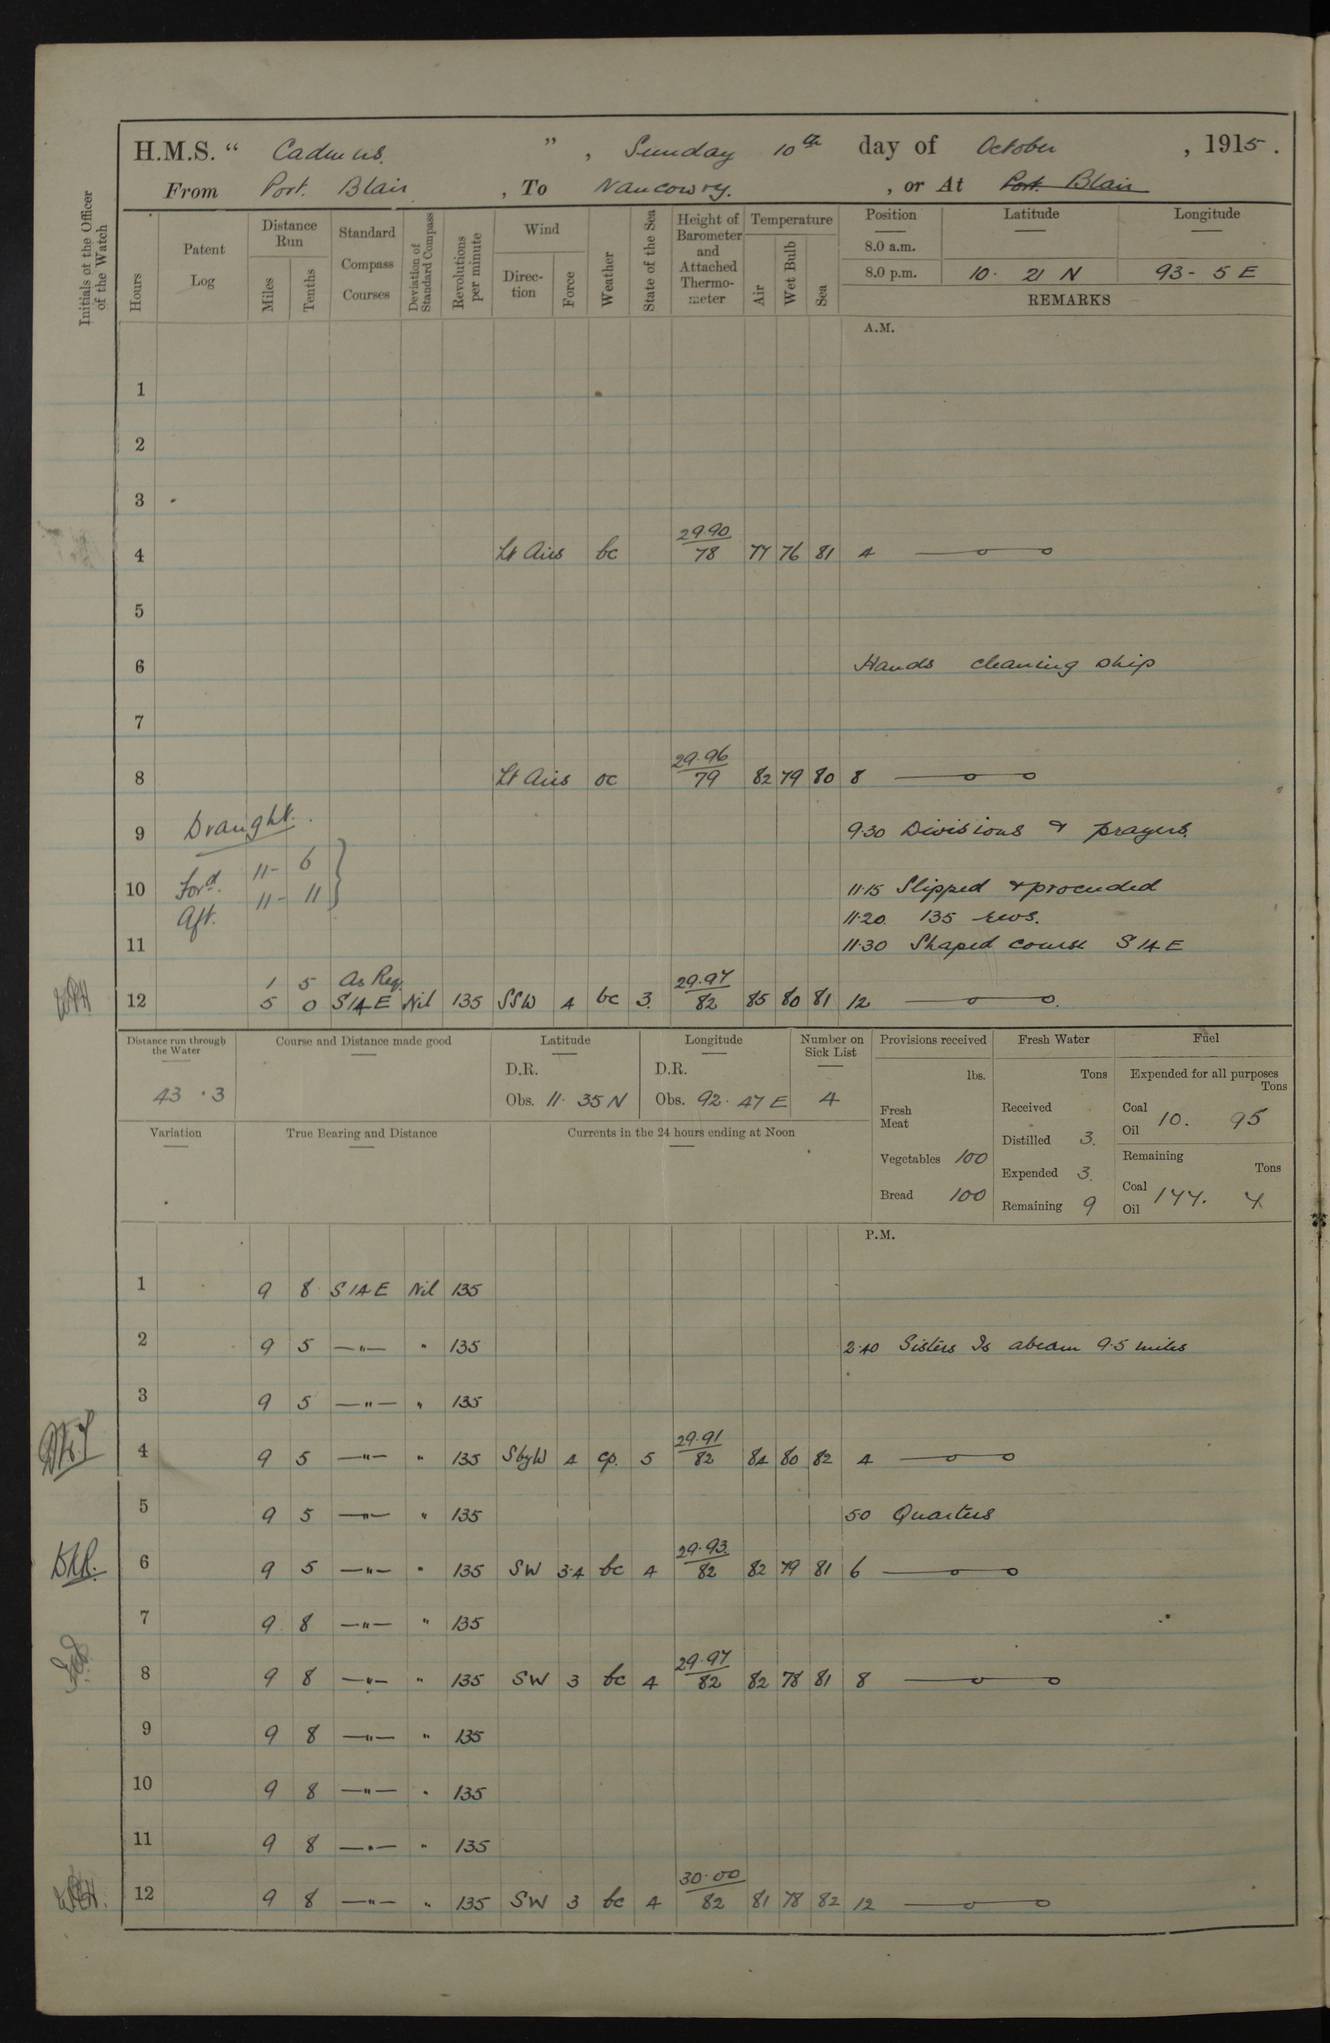 H.M.S. “ Cadmus. ” , Sunday 10th day of October , 1915 .
From Port. Blair , To Nancowry. , or At Port Blair
Initials of the Officer of the Watch
Hours
Patent Log
Distance Run
Miles
Tenths
Standard Compass Courses
Deviation of Standard Compass
Revolutions per minute
Wind
Direc-tion
Force
Weather
State of the Sea
Height of Barometer and Attached Thermo-meter
Temperature
Air
Wet Bulb
Sea
Position Latitude Longitude
8.0 a.m.
8.0 p.m. 10. 21 N 93 - 5 E
REMARKS
A.M.
1
2
3
4 Lt Airs bc 29.90 / 78 77 76 81 4
5
6 Hands cleaning ship
7
8 Lt Airs oc 29.96 / 79 82 79 80 8
9 Draught. 9.30 Divisions & prayers.
Ford. 11 - 6
10 11.15 Slipped & proceeded
Aft. 11 - 11
11.20 135 revs.
11 11.30 Shaped course S 14 E
1 5 As Req.
12 5 0 S 14 E Nil 135 SSW 4 bc 3. 29.97 / 82 85 80 81 12
Distance run through the Water
43 . 3
Course and Distance made good
Latitude
D.R.
Obs. 11. 35 N
Longitude
D.R.
Obs. 92. 47 E
Number on Sick List
4
Provisions received
lbs.
Fresh Meat
Vegetables 100
Bread 100
Fresh Water
Tons
Received
Distilled 3.
Expended 3.
Remaining 9
Fuel
Expended for all purposes
Tons
Coal
Oil 10. 95
Remaining
Tons
Coal
Oil 177.
Variation
True Bearing and Distance
Currents in the 24 hours ending at Noon
P.M.
1 9 8 S 14 E Nil 135
2 9 5 —"— " 135 2.40 Sisters Is abeam 9.5 miles
3 9 5 —"— " 135
4 9 5 —"— " 135 SbyW 4 cp. 5 29.91 / 82 84 80 82 4
5 9 5 —"— " 135 50 Quarters
6 9 5 —"— " 135 SW 3.4 bc 4 29.93. / 82 82 79 81 6
7 9 8 —"— " 135
8 9 8 —"— " 135 SW 3 bc 4 29.97 / 82 82 78 81 8
9 9 8 —"— " 135
10 9 8 —"— " 135
11 9 8 —"— " 135
12 9 8 —"— " 135 SW 3 bc 4 30.00 / 82 81 78 82 12